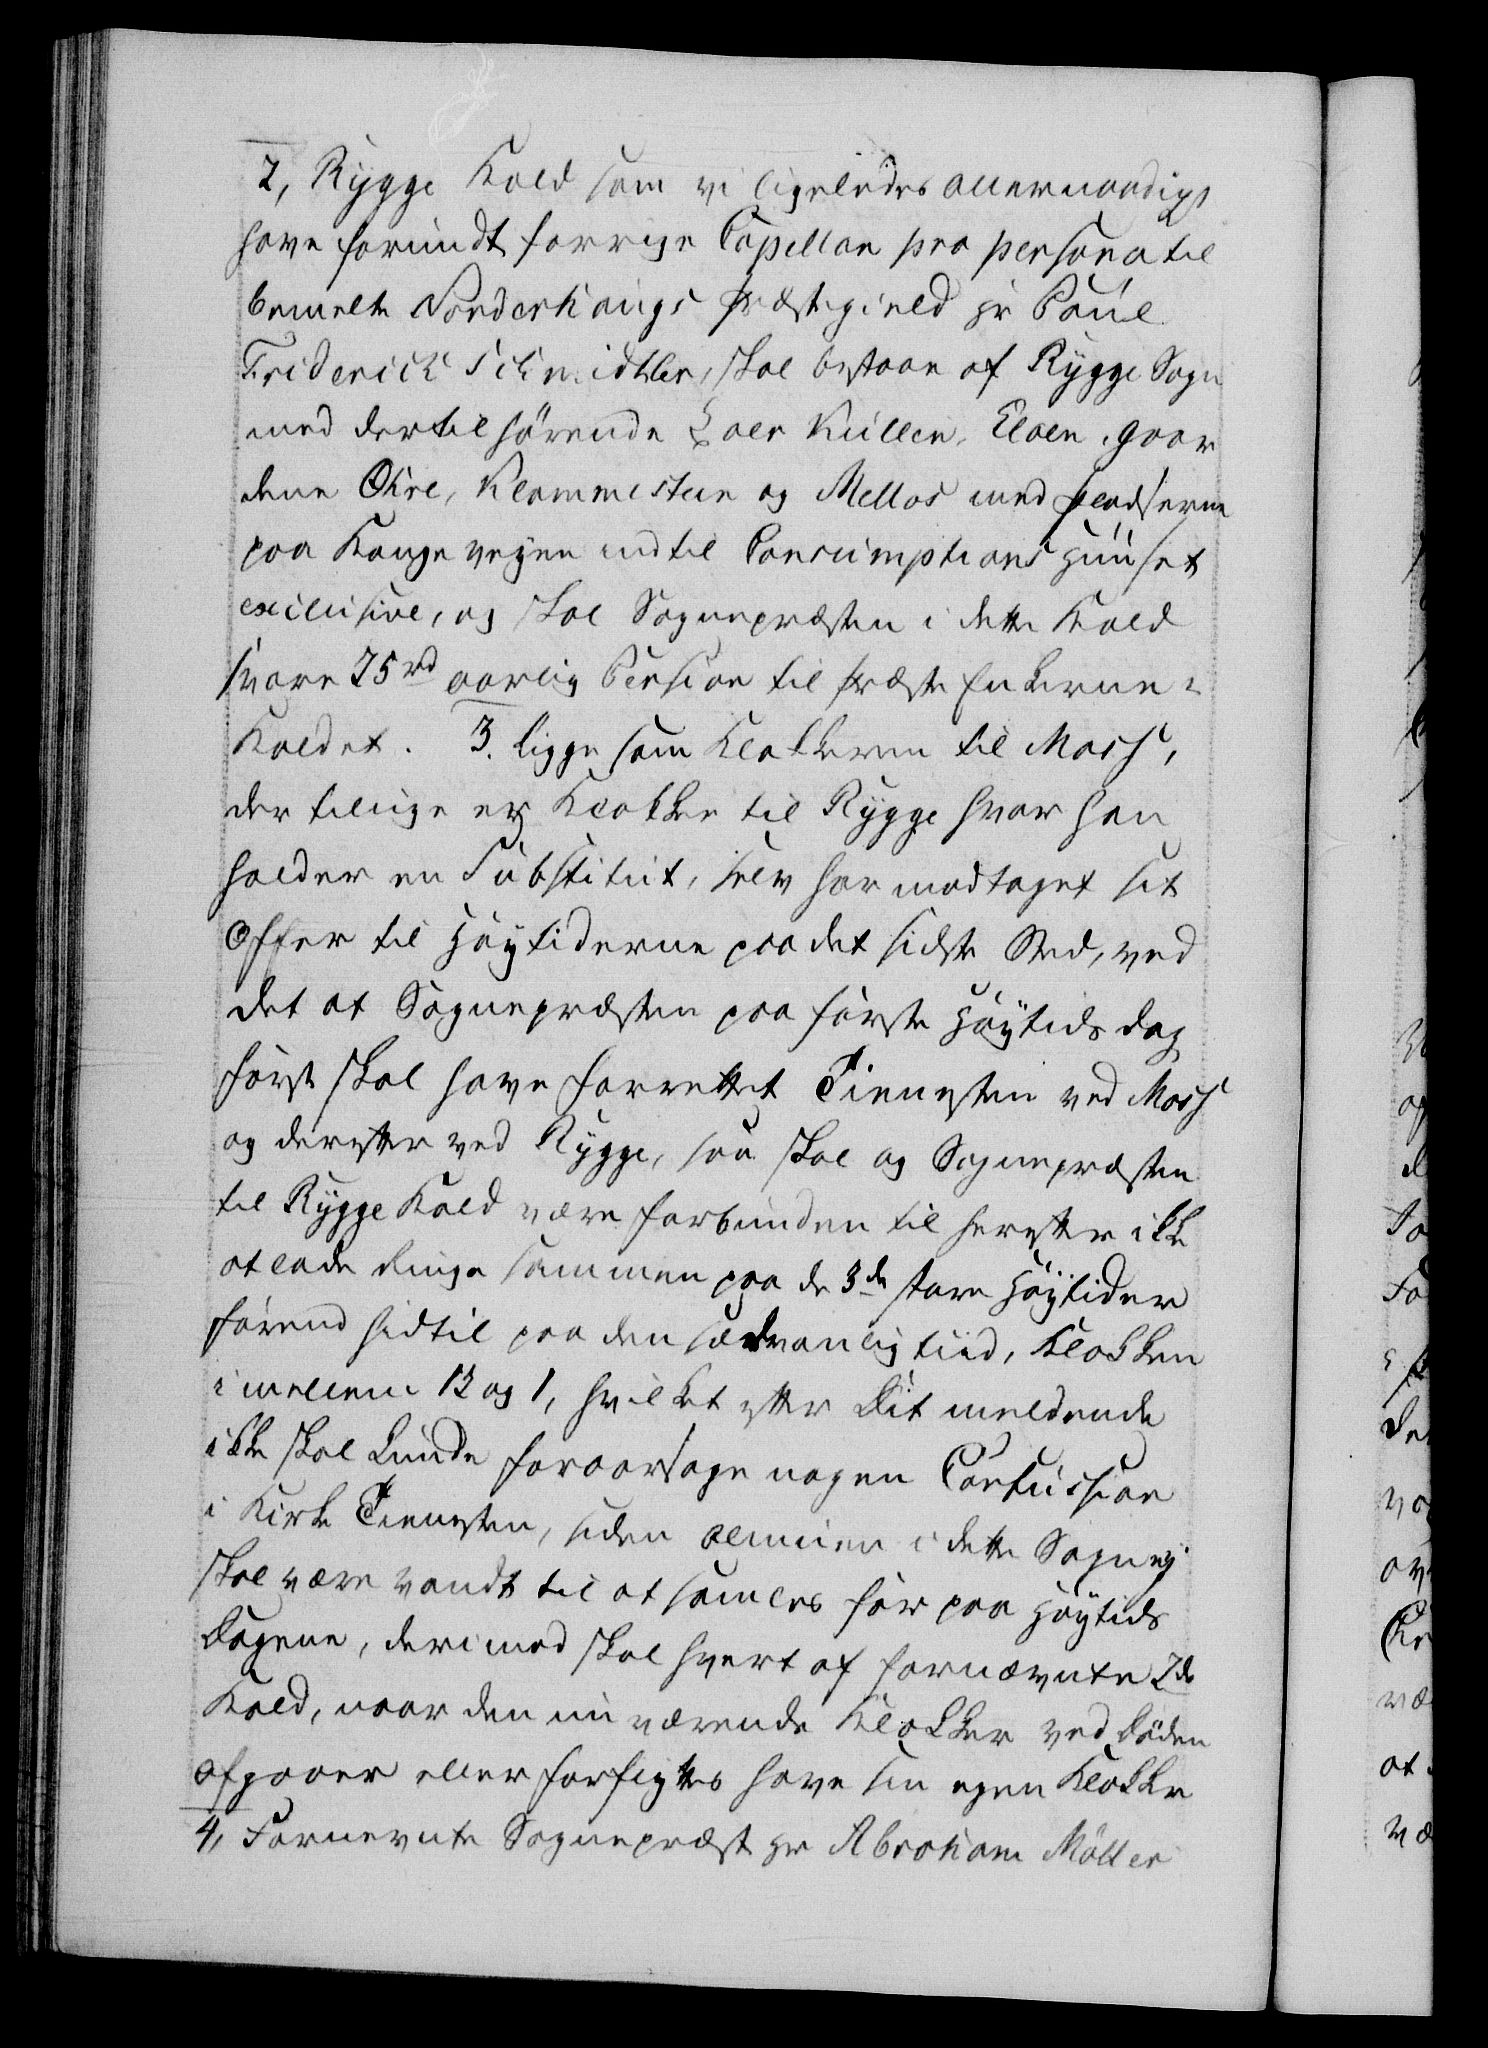 2, Rygge Kald som vi ligeledes allernaadigst
have forundt forrige Capellan pro persona til
bemelte Norderhougs Præstegield Hr Poul
Friderich Schmidtler, skal bestaae af Rygge Sogn
med dertil hørende Øer Kullen, Eloen, gaar
dene Ohre, Klommesteen og Mellos med pladserne
paa Kongeveyen indtil Consumptions Huuset
exclusive, og skal Sognepræsten i dette Kald
svare 75 rd aarlig Pension til Præste Enkerne i
Kaldet. 3. Ligesom Klokkeren til Moss,
der tillige er Klokker til Rygge hvor han
holder en Substitut, selv har modtaget sit
Offer til Høytiderne paa det sidste Sted, ved
det at Sognepræsten paa første Høytids dag
først skal have forrettet Tienesten ved Moss
og derefter ved Rygge, saa skal og Sognepræsten
til Rygge Kald være forbunden til herefter ikke
at lade Ringe sammen paa de 3de store Høytider
førend hidtil paa den sædvanlig tiid, Klokken
imellem 12 og 1, hvilket efter Dit meldende
ikke skal kunde foraarsage nogen Confussion
i Kirke Tienesten, siden Almuen i dette Sogn ej
skal være vandt til at samles før paa Høytids
Dagene, derimod skal hvert af fornævnte 2de
Kald, naar den nu værende Klokker ved Døden
afgaaer eller forflyttes have sin egen Klokker
4, Fornevnte Sognepræst Hr Abraham Møller